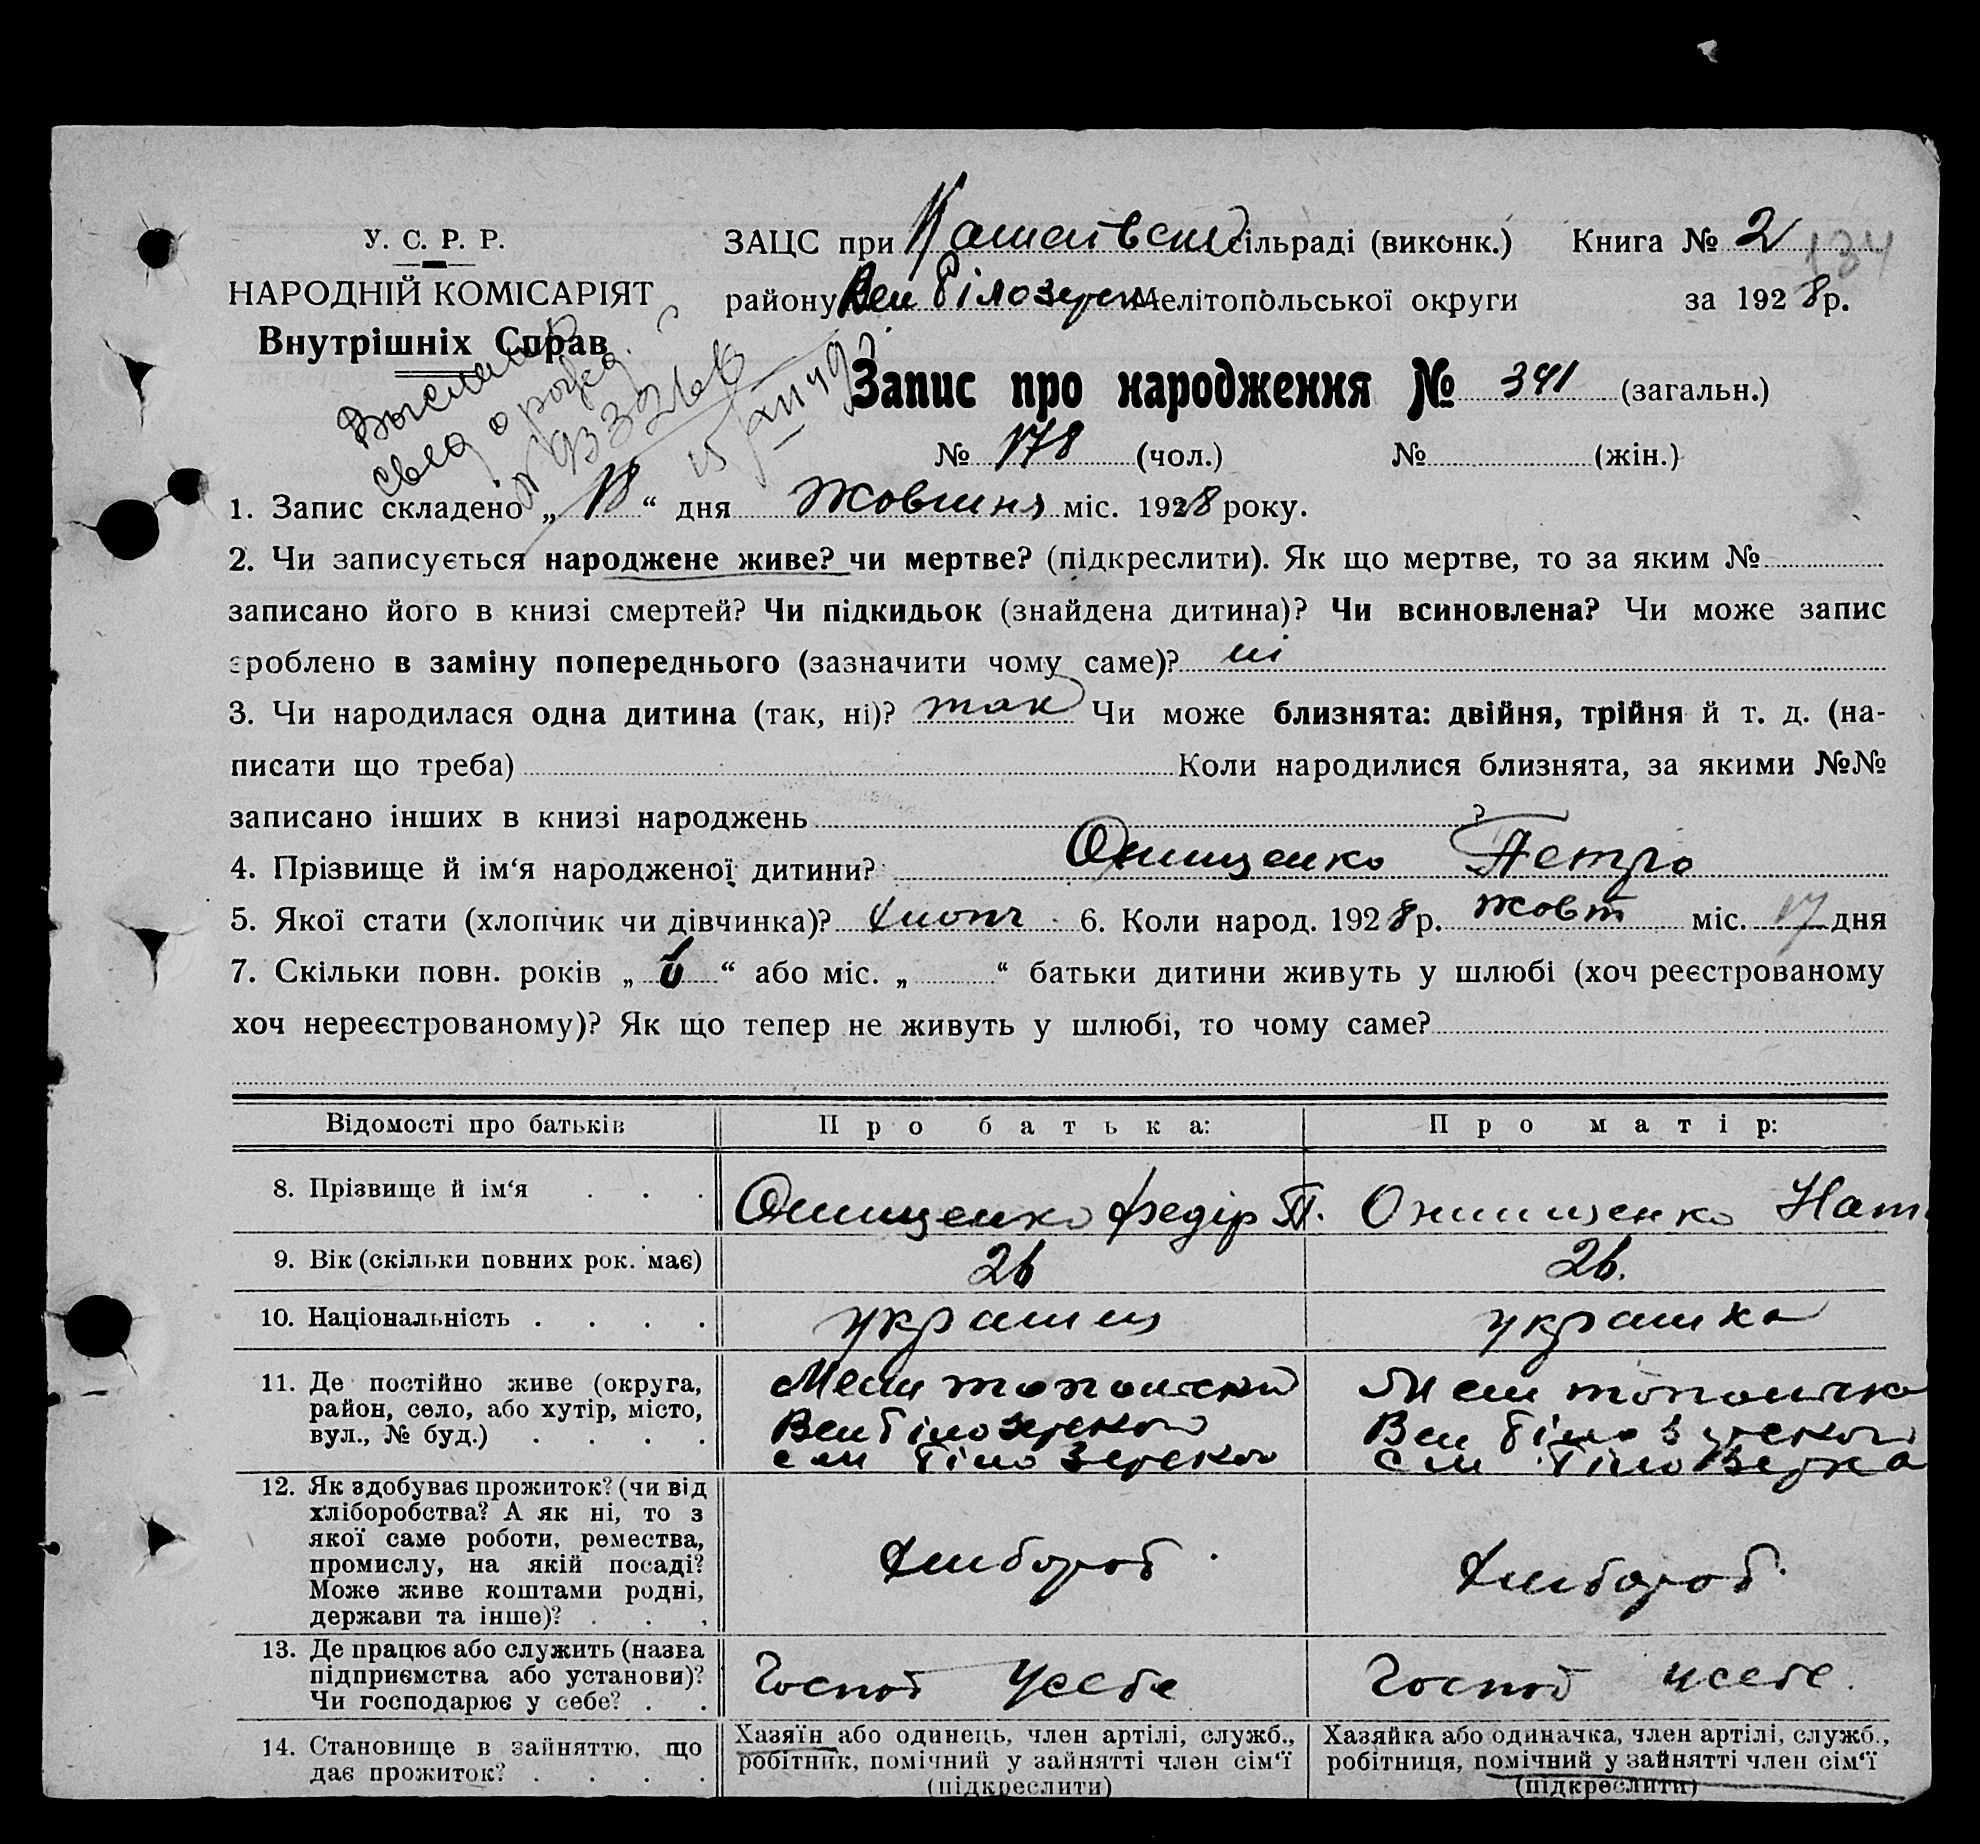 У. С. Р. Р.
НАРОДНІЙ КОМІСАРІЯТ
Внутрішніх Справ
ЗАЦС при сільраді (виконк.) Книга № 2
134
району Вел Білозерськ Мелітопольської округи за 1928 р.
Запис про народження № 341 (загальн.)
№ 178 (чол.) № (жін.)
1. Запис складено „ “ дня Жовтня міс. 1928 року.
2. Чи записується народжене живе? чи мертве? (підкреслити). Як що мертве, то за яким №
записано його в книзі смертей? Чи підкидьок (знайдена дитина)? Чи всиновлена? Чи може запис
зроблено в заміну попереднього (зазначити чому саме)? ні
3. Чи народилася одна дитина (так, ні)? так Чи може близнята: двійня, трійня й т. д. (на-
писати що треба) Коли народилися близнята, за якими №№
записано інших в книзі народжень ?
4. Прізвище й ім‘я народженої дитини? Онищенко Петро
5. Якої стати (хлопчик чи дівчинка)? хлопч 6. Коли народ. 1928 р. жовт міс. 17 дня
7. Скільки повн. років „ 6 “ або міс. „ “ батьки дитини живуть у шлюбі (хоч реєстрованому
хоч нереєстрованому)? Як що тепер не живуть у шлюбі, то чому саме?
Відомості про батьків Про батька: Про матір:
8. Прізвище й ім‘я Онищенко Федір П. Онищенко Нат
9. Вік (скільки повних рок. має) 26 26.
10. Національність українц українка
11. Де постійно живе (округа,
район, село, або хутір, місто,
вул., № буд.)
Мелітопольськ
Вел Білозерської
Мелітопольська
Вел Білозерської
12. Як здобуває прожиток? (чи від
хліборобства? А як ні, то з
якої саме роботи, ремества,
промислу, на якій посаді?
Може живе коштами родні,
держави та інше)?
хлібороб
хлібороб.
13. Де працює або служить (назва
підприємства або установи)?
Чи господарює у себе?
Господ у себе
Господ у себе.
14. Становище в зайняттю, що
дає прожиток?
Хазяїн або одинець, член артілі, служб.,
робітник, помічний у зайнятті член сім‘ї
(підкреслити)
Хазяйка або одиначка, член артілі, служб.,
робітниця, помічний у зайнятті член сім‘ї
(підкреслити)